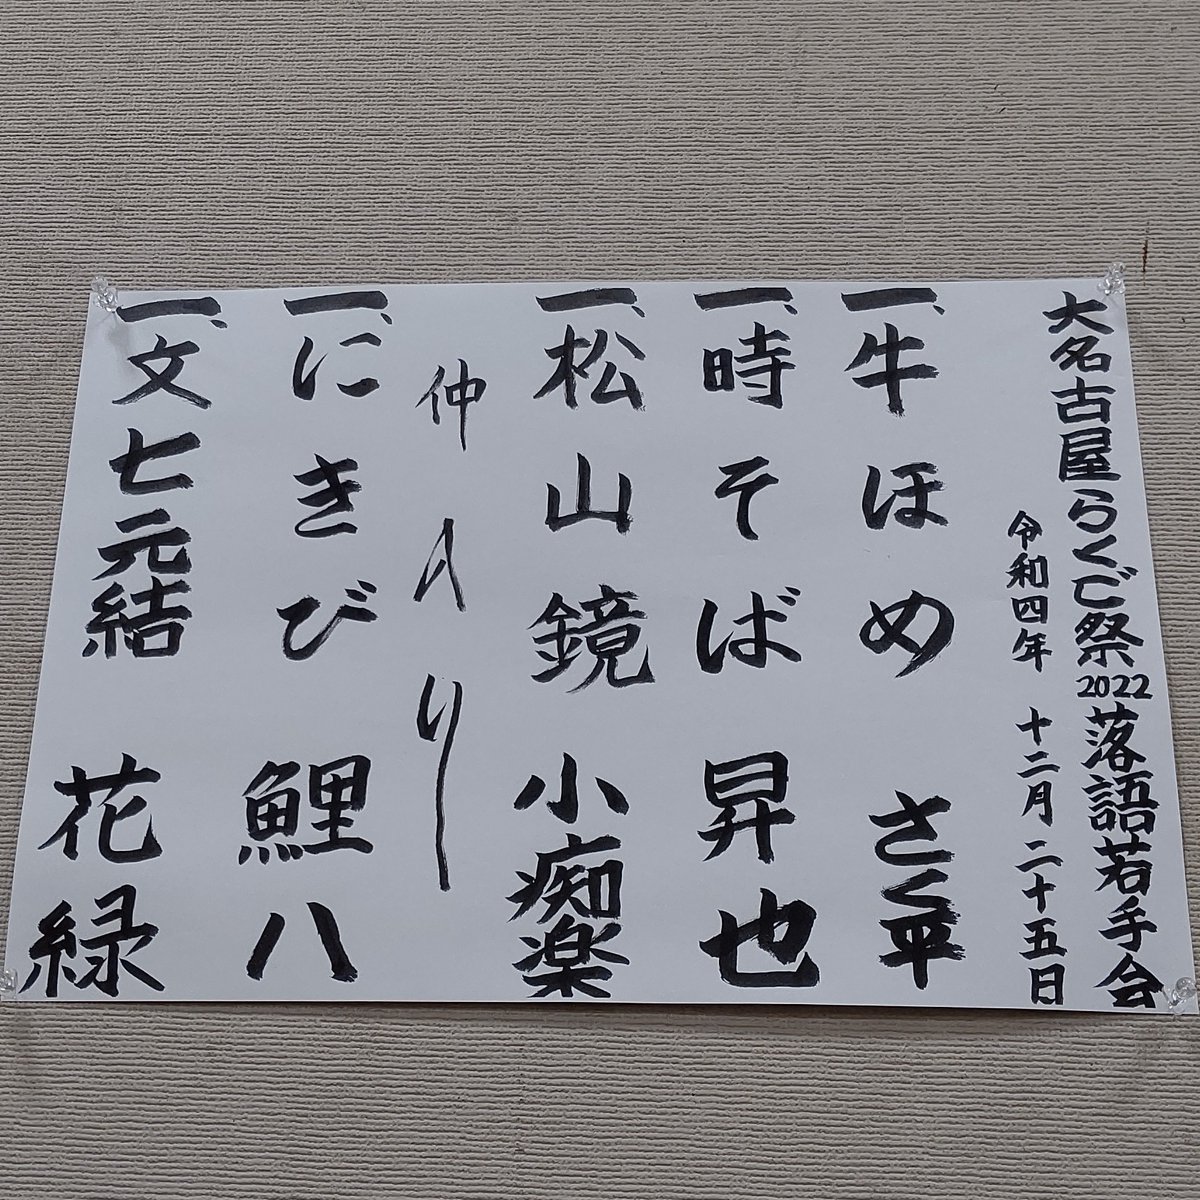 大名古屋らくご祭2022落語若手会
令和四年 十二月二十五日
一、牛ほめ さく平
一、時そば 昇也
一、松山鏡 小痴楽
仲入り
一、にきび 鯉八
一、文七元結 花緑